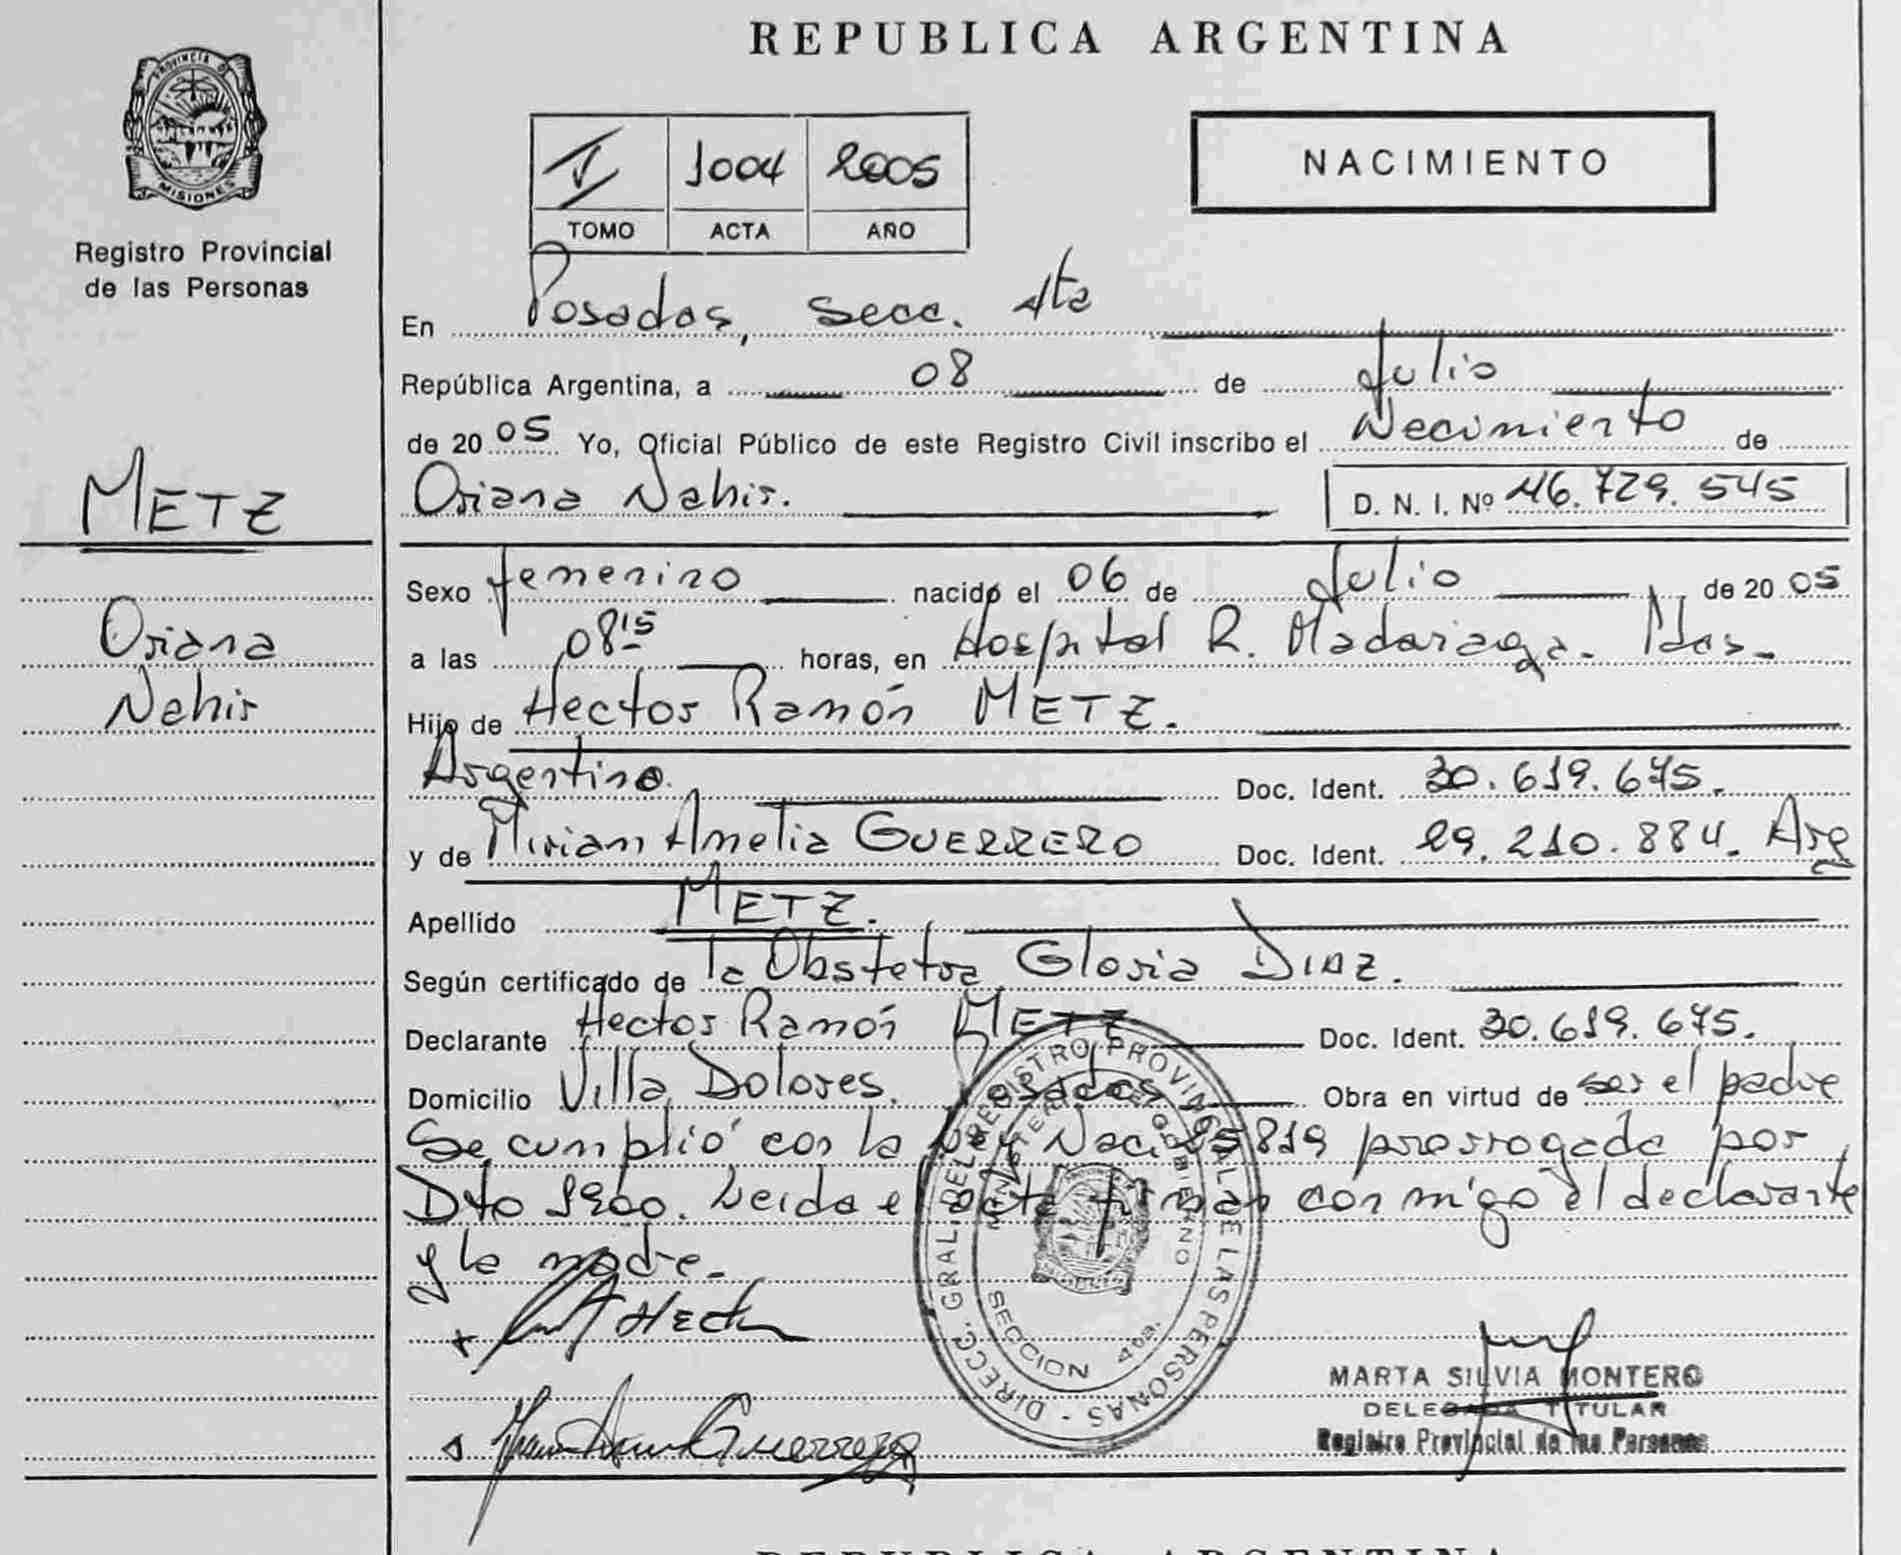 REPUBLICA ARGENTINA
PROVINCIA DE MISIONES
Registro Provincial
de las Personas
I 1004 2005
TOMO ACTA AÑO
NACIMIENTO
METZ
Oriana
Nahir
En Posadas, Secc. 4ta
República Argentina, a 08 de Julio
de 2005 Yo, Oficial Público de este Registro Civil inscribo el Nacimiento de
Oriana Nahir. D. N. I. Nº 46.729.545
Sexo femenino nacido el 06 de Julio de 2005
a las 08 15 horas, en Hospital R. Madariaga. Pdas.
Hijo de Hector Ramón METZ.
Argentino. Doc. Ident. 30.619.675.
y de Miriam Amelia GUERRERO Doc. Ident. 29.210.884. Arg
Apellido METZ.
Según certificado de la Obstetra Gloria DIAZ.
Declarante Hector Ramón METZ Doc. Ident. 30.619.675.
Domicilio Villa Dolores. Posadas Obra en virtud de ser el padre
Se cumplió con la Ley Nac. 25819 prorrogada por
Dto 1900. Leida el acta firman conmigo el declarante
y la madre.
Hect
Guerrero
DIRECC. GRAL. DEL REGISTRO PROVINCIAL DE LAS PERSONAS
MINISTERIO DE GOBIERNO
SECCION 4ta.
MARTA SILVIA MONTERO
DELEGADA TITULAR
Registro Provincial de las Personas
REPUBLICA ARGENTINA